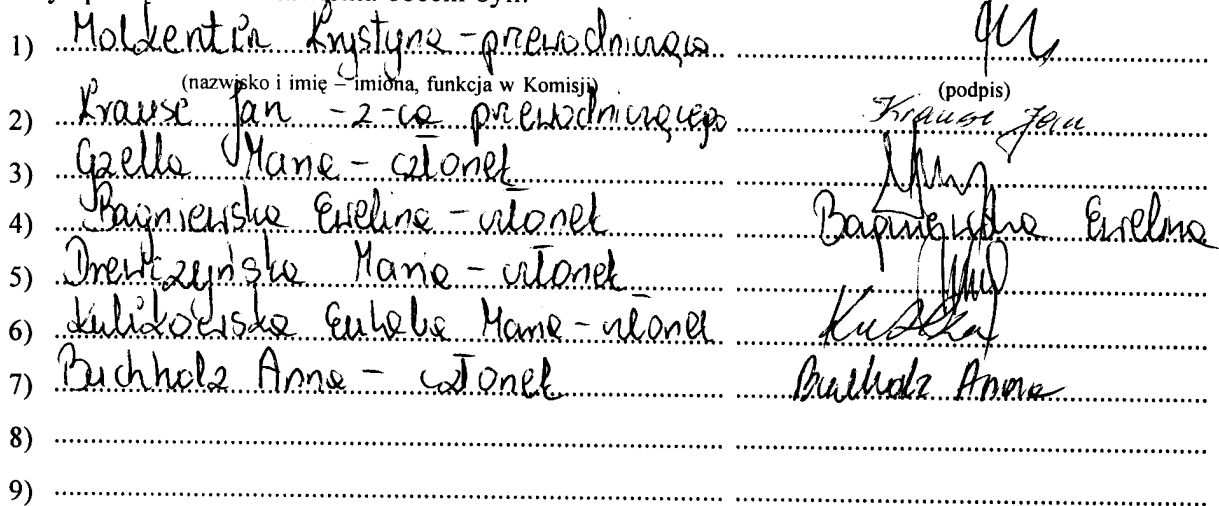 obecni byli:
1) Molkentin Krystyna - przewodnicząca
(nazwisko i imię – imiona, funkcja w Komisji) (podpis)
2) Krause Jan - z-ca przewodniczącego Krause Jan
3) Gzella Maria - członek
4) Bagniewska Ewelina - członek Bagniewska Ewelina
5) Drewczyńska Maria - członek
6) Maria - członek
7) Buchholz Anna - członek Buchholz Anna
8)
9)